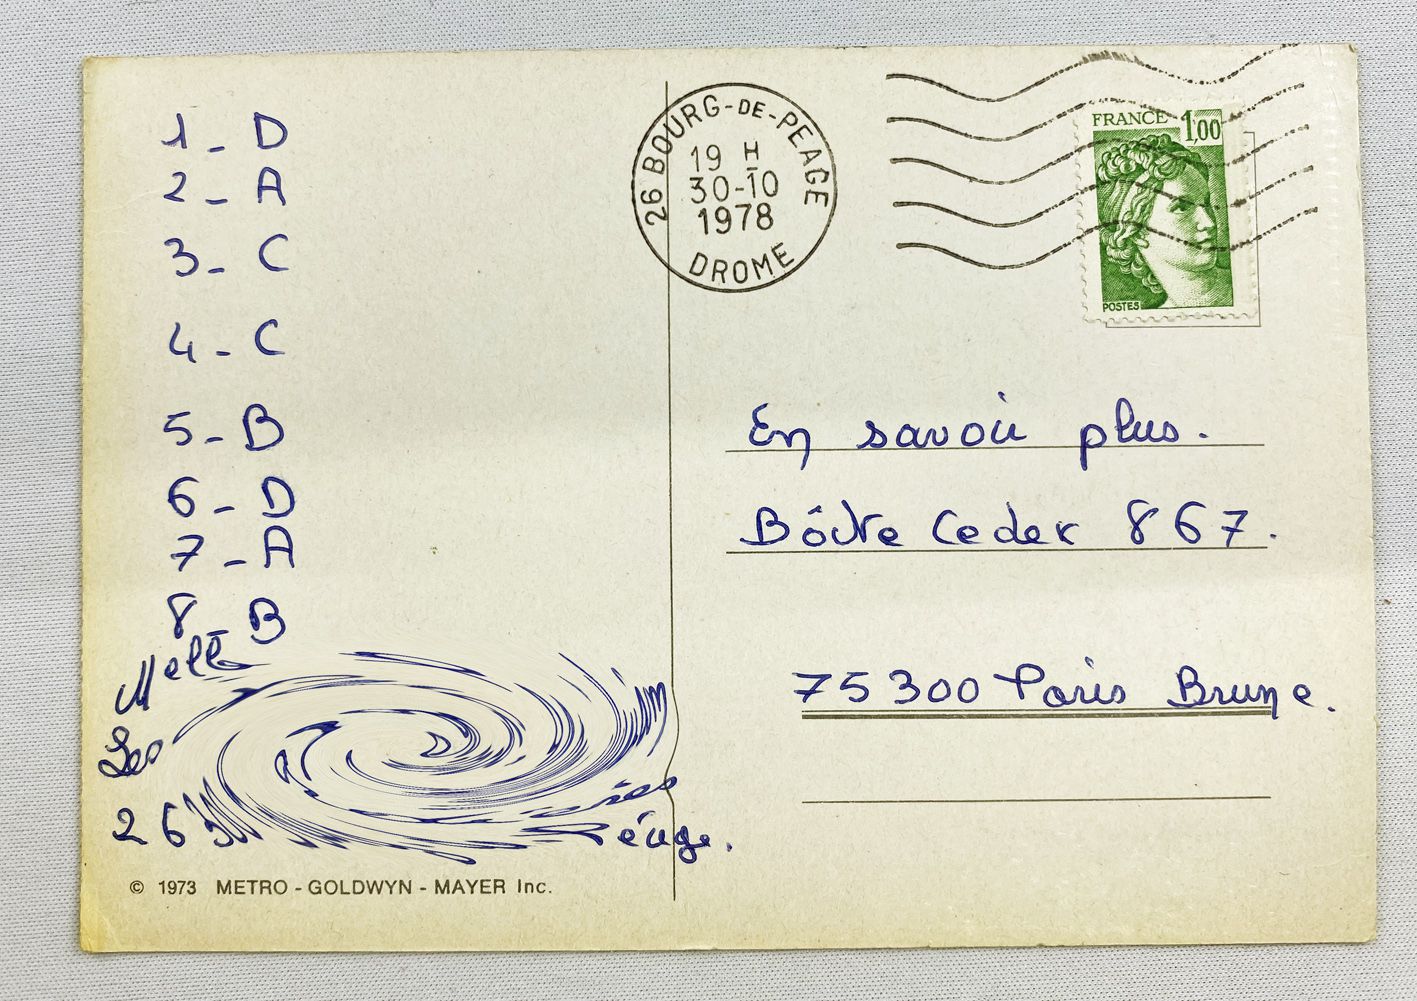 1 - D
2 - A
3 - C
4 - C
5 - B
6 - D
7 - A
8 - B
26 BOURG-DE-PEAGE
19 H
30-10
1978
DROME
FRANCE 1,00
POSTES
En savoir plus.
Bôite Cedex 867.
75300 Paris Brune.
Melle
Les
© 1973 METRO - GOLDWYN - MAYER Inc.